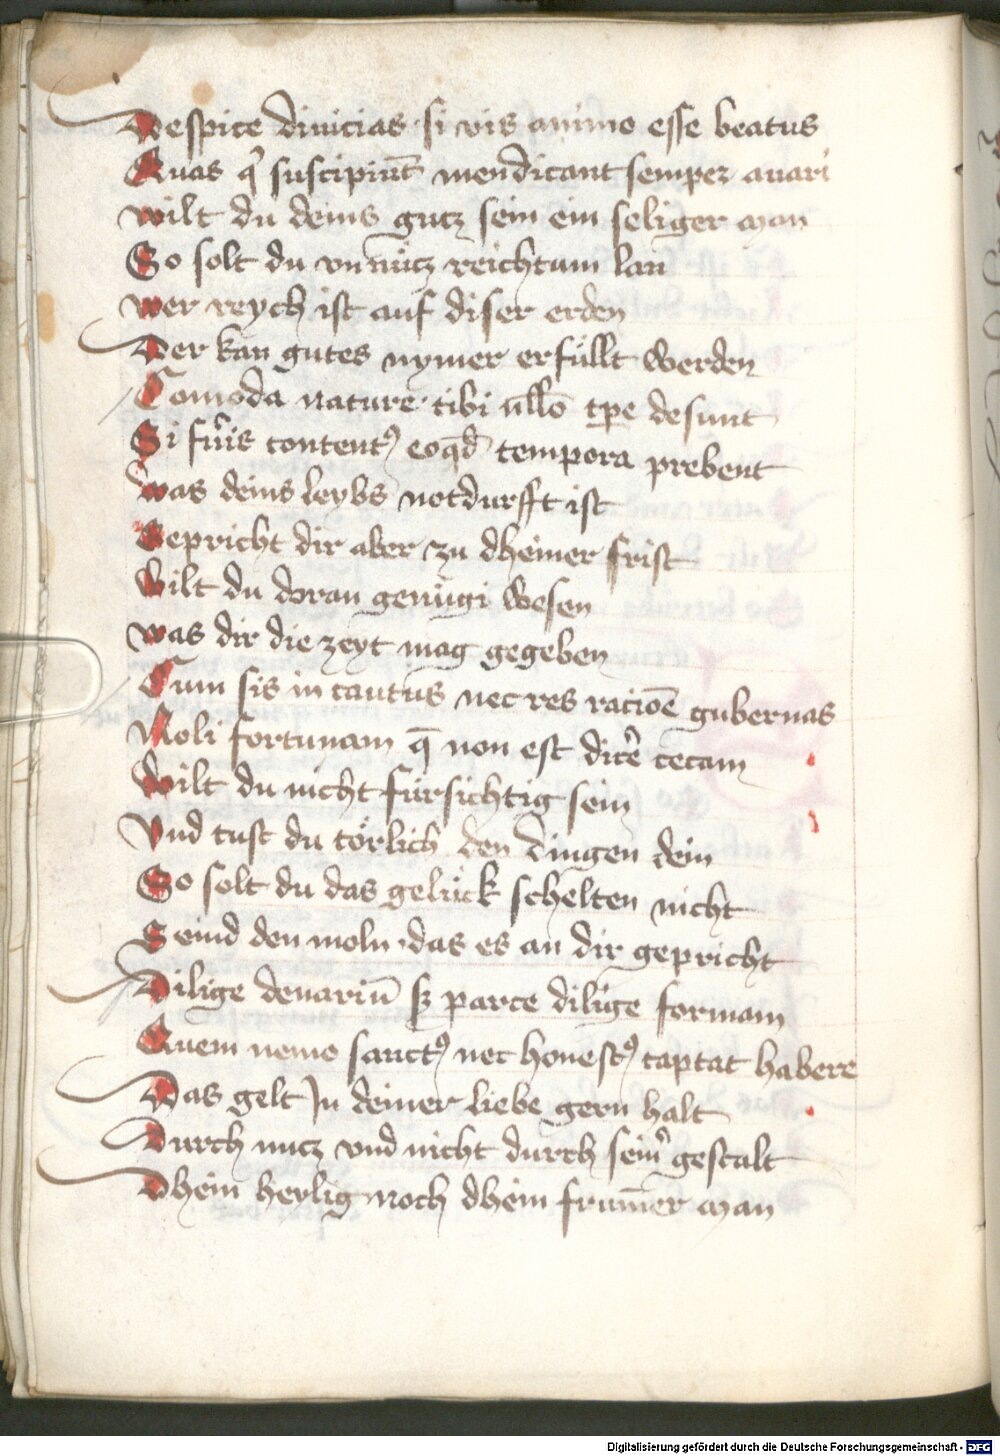 Despice diuicias si vis animo esse beatus
Quas q̇ suscipiūt mendicant semper auari
wilt du deins gutz sein ein seliger man
So solt du vnnücz reichtum lan
wer reych ist auf diser erden
Der kan gutes nymer erfüllt werden
Comoda nature tibi nullo tpe desunt
Si fu͛is contentꝰ eo qd̄ tempora prebent
was deins leybs notdurfft ist
Gepricht dir aber zu dheiner frist
Wilt du doran genügi wesen
was dir die zeyt mag gegeben
Cum sis in cautus nec res racioē gubernas
Noli fortunam q̄ non est dice͛ cecam
Wilt du nicht fürsichtig sein
Vnd tust du törlich den dingen dein
So solt du das gelück schelten nicht
Seind den moln das es an dir gepricht
Dilige denariū sꝫ parce dilige formam
Quem nemo sanctꝰ nec honestꝰ captat habere
Das gelt In deiner liebe gern halt
Durch nucz vnd nicht durch seim͛ gestalt
Dhein heylig noch dhein frum̄er man
Digitalisierung gefördert durch die Deutsche Forschungsgemeinschaft - DFG